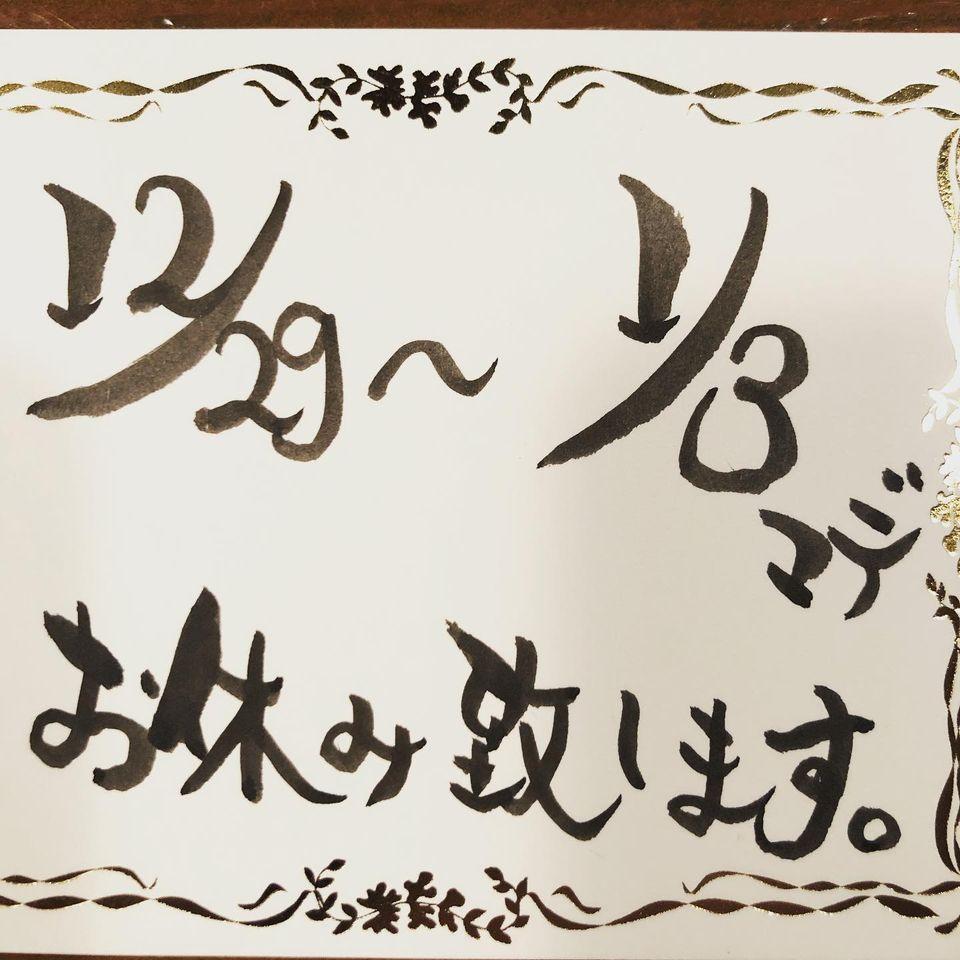 12/29～1/3
マデ
お休み致します。